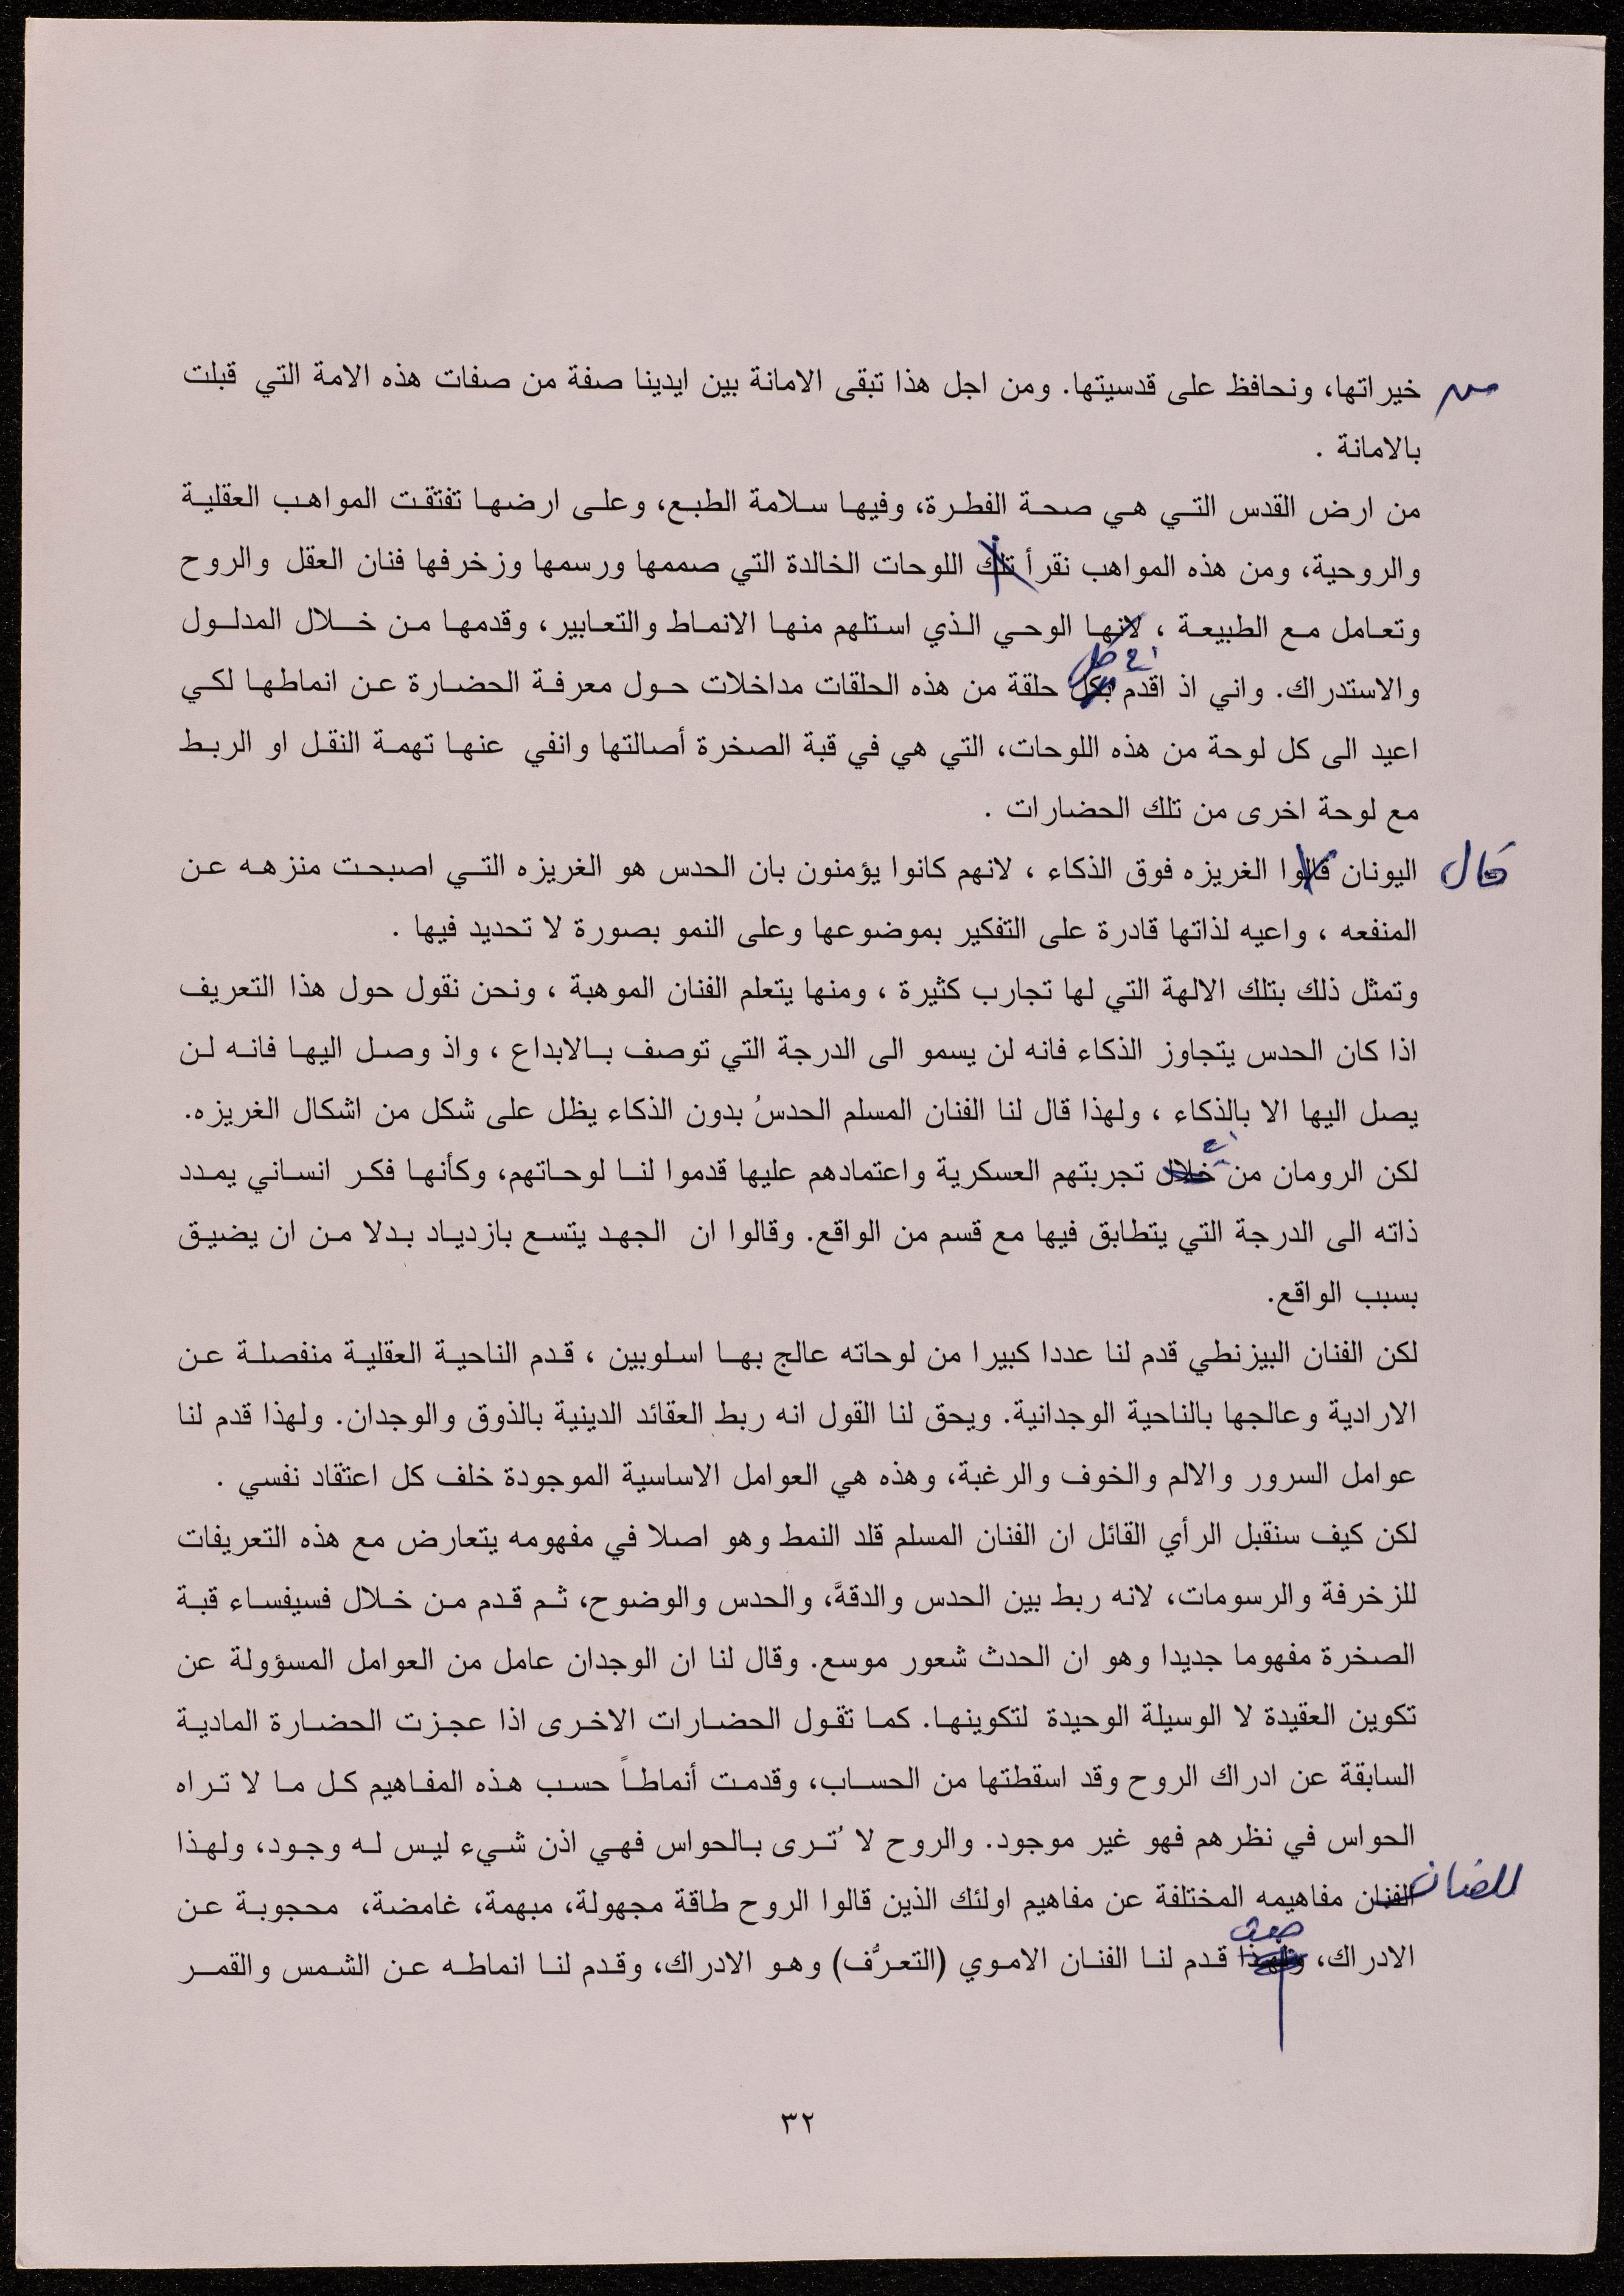 من خيراتها، ونحافظ على قدسيتها. ومن اجل هذا تبقى الامانة بين ايدينا صفة من صفات هذه الامة التي قبلت
بالامانة .
من ارض القدس التي هي صحة الفطرة، وفيها سلامة الطبع، وعلى ارضها تفتقت المواهب العقلية
والروحية، ومن هذه المواهب نقرأ تلك اللوحات الخالدة التي صممها ورسمها وزخرفها فنان العقل والروح
وتعامل مع الطبيعة ، لانها الوحي الذي استلهم منها الانماط والتعابير، وقدمها من خلال المدلول
في كل
والاستدراك. واني اذ اقدم بكل حلقة من هذه الحلقات مداخلات حول معرفة الحضارة عن انماطها لكي
اعيد الى كل لوحة من هذه اللوحات، التي هي في قبة الصخرة أصالتها وانفي عنها تهمة النقل او الربط
مع لوحة اخرى من تلك الحضارات .
قال
اليونان قالوا الغريزه فوق الذكاء ، لانهم كانوا يؤمنون بان الحدس هو الغريزه التي اصبحت منزهه عن
المنفعه ، واعيه لذاتها قادرة على التفكير بموضوعها وعلى النمو بصورة لا تحديد فيها .
وتمثل ذلك بتلك الالهة التي لها تجارب كثيرة ، ومنها يتعلم الفنان الموهبة ، ونحن نقول حول هذا التعريف
اذا كان الحدس يتجاوز الذكاء فانه لن يسمو الى الدرجة التي توصف بالابداع ، واذ وصل اليها فانه لن
يصل اليها الا بالذكاء ، ولهذا قال لنا الفنان المسلم الحدسُ بدون الذكاء يظل على شكل من اشكال الغريزه.
لكن الرومان من خلال تجربتهم العسكرية واعتمادهم عليها قدموا لنا لوحاتهم، وكأنها فكر انساني يمدد
ذاته الى الدرجة التي يتطابق فيها مع قسم من الواقع. وقالوا ان الجهد يتسع بازدياد بدلا من ان يضيق
بسبب الواقع.
لكن الفنان البيزنطي قدم لنا عددا كبيرا من لوحاته عالج بها اسلوبين ، قدم الناحية العقلية منفصلة عن
الارادية وعالجها بالناحية الوجدانية. ويحق لنا القول انه ربط العقائد الدينية بالذوق والوجدان. ولهذا قدم لنا
عوامل السرور والالم والخوف والرغبة، وهذه هي العوامل الاساسية الموجودة خلف كل اعتقاد نفسي .
لكن كيف سنقبل الرأي القائل ان الفنان المسلم قلد النمط وهو اصلا في مفهومه يتعارض مع هذه التعريفات
للزخرفة والرسومات، لانه ربط بين الحدس والدقةَّ، والحدس والوضوح، ثم قدم من خلال فسيفساء قبة
الصخرة مفهوما جديدا وهو ان الحدث شعور موسع. وقال لنا ان الوجدان عامل من العوامل المسؤولة عن
تكوين العقيدة لا الوسيلة الوحيدة لتكوينها. كما تقول الحضارات الاخرى اذا عجزت الحضارة المادية
السابقة عن ادراك الروح وقد اسقطتها من الحساب، وقدمت أنماطاً حسب هذه المفاهيم كل ما لا تراه
الحواس في نظرهم فهو غير موجود. والروح لا ُترى بالحواس فهي اذن شيء ليس له وجود، ولهذا
للفنان
الفنان مفاهيمه المختلفة عن مفاهيم اولئك الذين قالوا الروح طاقة مجهولة، مبهمة، غامضة، محجوبة عن
الادراك، ولهذا قدم لنا الفنان الاموي (التعرُّف) وهو الادراك، وقدم لنا انماطه عن الشمس والقمر
٣٢